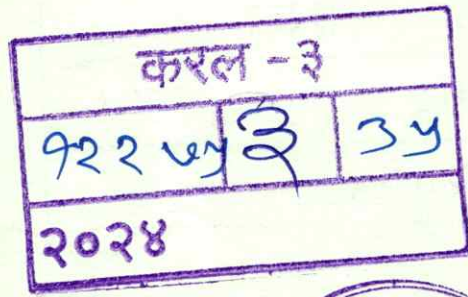 करल - ३
१२२७५ ३ ३५
२०२४